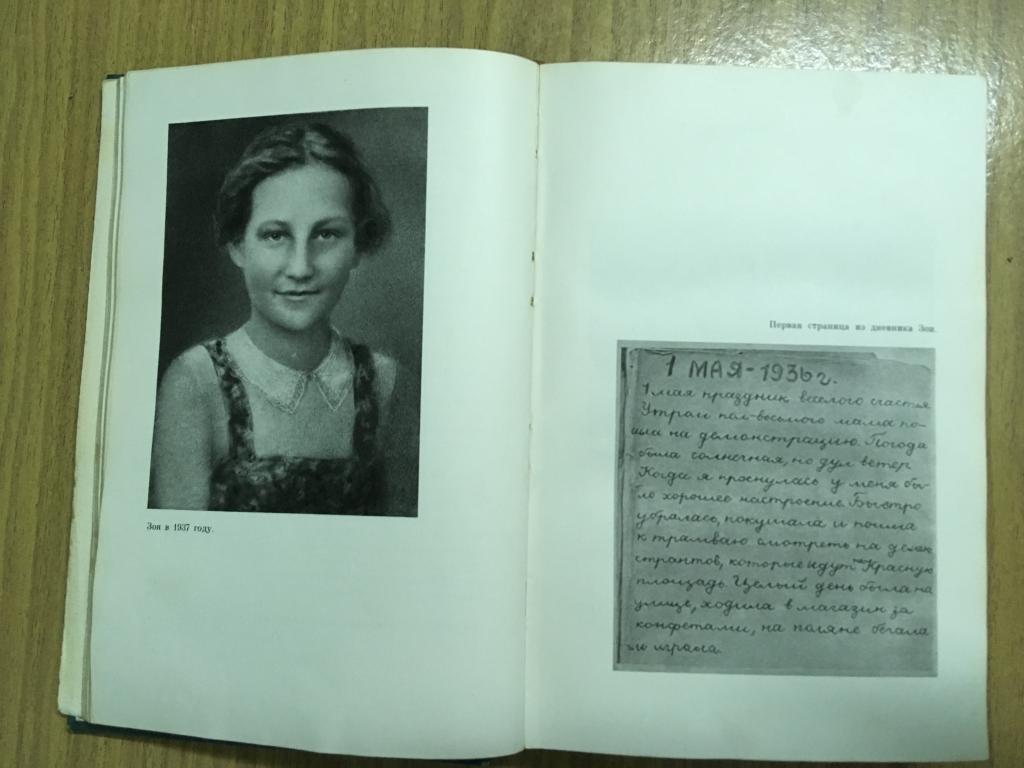 Зоя в 1937 году.
Первая страница из дневника Зои.
1 МАЯ-1936г.
1 мая праздник веселого счастья
Утром пол-восьмого мама по-
шла на демонстрацию. Погода
была солнечная, но дул ветер
Когда я проснулась у меня бы-
ло хорошее настроение. Быстро
убралась, покушала и пошла
к трамваю смотреть на демон
странтов, которые идут на Красную
площадь. Целый день была на
улице, ходила в магазин за
конфетами, на поляне бегала
и играла.